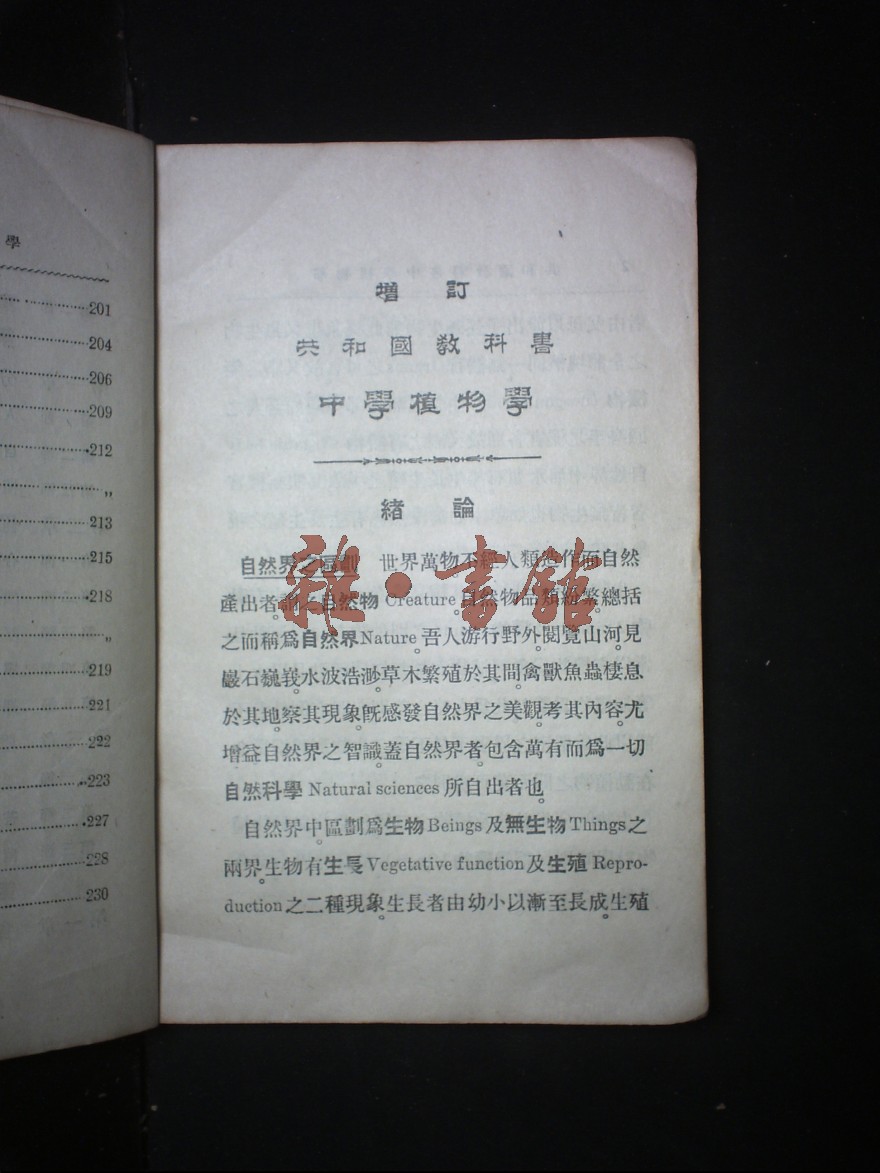 學
201
204
206
209
212
〃
213
215
218
〃
219
221
222
223
227
228
230
增訂
共和國教科書
中學植物學
緒論
自然界之區劃 世界萬物不經人類造作而自然
產出者。謂之自然物 Creature。自然物品類紛繁。總括
之而稱爲自然界 Nature。吾人游行野外。閱覽山河。見
巖石巍峩。水波浩渺。草木繁殖於其間。禽獸魚蟲棲息
於其地。察其現象。旣感發自然界之美觀。考其內容。尤
增益自然界之智識。蓋自然界者。包含萬有而爲一切
自然科學 Natural sciences 所自出者也。
自然界中。區劃爲生物 Beings 及無生物 Things 之
兩界。生物有生長 Vegetative function 及生殖 Repro-
duction 之二種現象。生長者由幼小以漸至長成。生殖
雜·書館